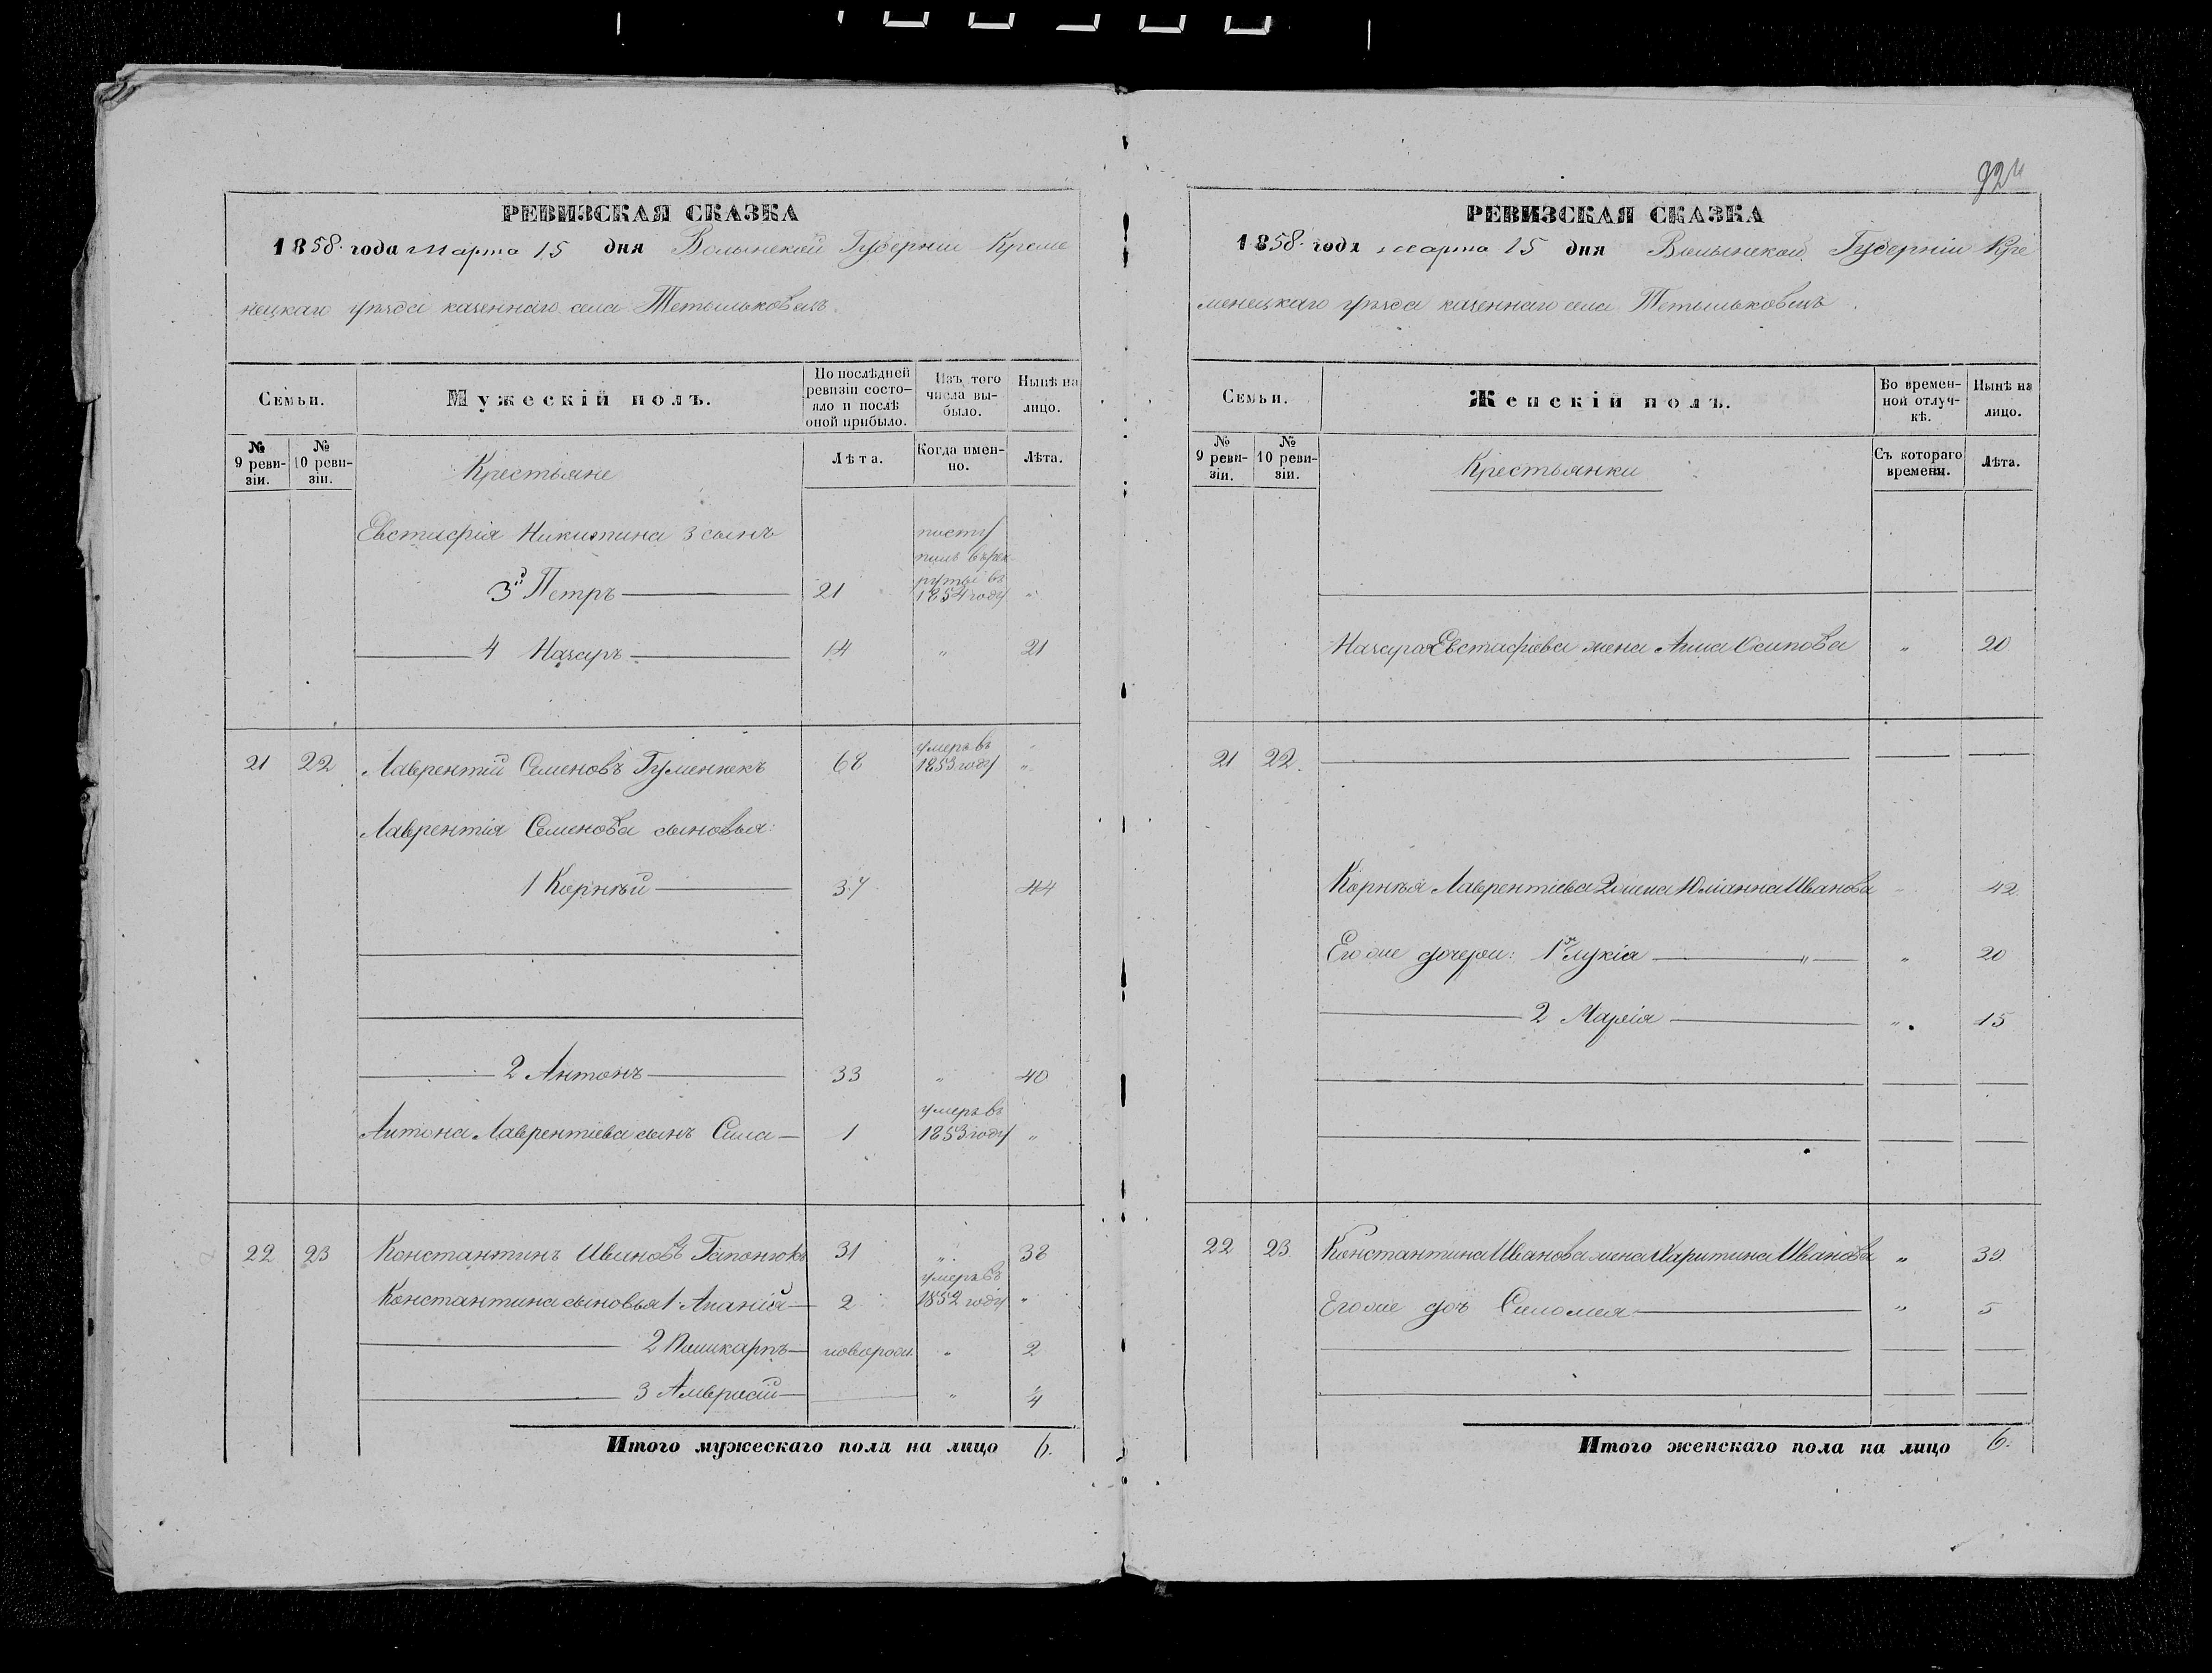 924
РЕВИЗСКАЯ СКАЗКА
1858 года Марта 15 дня Волынской Губерніи Креме
нецкаго уѣзда казеннаго села Тетыльковецъ
Семьи.
Мужескій полъ.
По послѣдней ревизіи состояло и послѣ оной прибыло.
Изъ того числа выбыло.
Нынѣ на лицо.
№ 9 ревизіи.
№ 10 ревизіи.
Крестьяне
Лѣта.
Когда именно.
Лѣта.
Евстафія Никитина 3 сынъ
3й Петръ 21 поступилъ въ рекруты въ 1854 году "
4 Назаръ 14 " 21
21 22 Лаврентій Семеновъ Гуменюкъ 68 умеръ въ 1853 году "
Лаврентія Семенова сыновья:
1 Корнѣй 37 44
2 Антонъ 33 " 40
Антона Лаврентіева сынъ Сила 1 умеръ въ 1853 году "
22 23 Константинъ Ивановъ Гапонюкъ 31 " 38
Константина сыновья 1 Ананій 2 умеръ въ 1852 году "
2 Поликарпъ новорожд. " 2
3 Амвросій " 4
Итого мужескаго пола на лицо 6.
РЕВИЗСКАЯ СКАЗКА
1858 года Марта 15 дня Волынской Губерніи Кре
менецкаго уѣзда казеннаго села Тетыльковецъ
Семьи.
Женскій полъ.
Во временной отлучкѣ.
Нынѣ на лицо.
№ 9 ревизіи.
№ 10 ревизіи.
Крестьянки
Съ котораго времени.
Лѣта.
Назара Евстафіева жена Анна Осипова " 20
21 22
Корнѣя Лаврентіева 2 жена Юліанна Иванова 42
Его же дочери: 1я Лукія " 20
2 Марія " 15
22 23 Константина Иванова жена Харитина Иванова " 39
Его же дочь Саломея " 5
Итого женскаго пола на лицо 6.